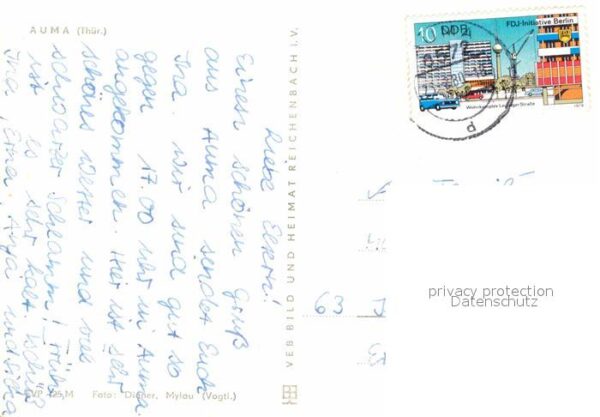 AUMA (Thür.)
Liebe Eltern!
Einen schönen Gruß
aus Auma sendet Euch
Ina. Wir sind gut so
gegen 17.00 Uhr in Auma
angekommen. Hier ist sehr
schönes Wetter und viel
schwarzer Schlamm! Früh
ist es sehr kalt. Tschüß
Ina, Erna, Anja und
VEB BILD UND HEIMAT REICHENBACH I. V.
Foto: Mylau (Vogtl.)
10 DDR
FDJ-Initiative Berlin
Wohnkomplex Leipziger Straße
1978
d
63
privacy protection
Datenschutz